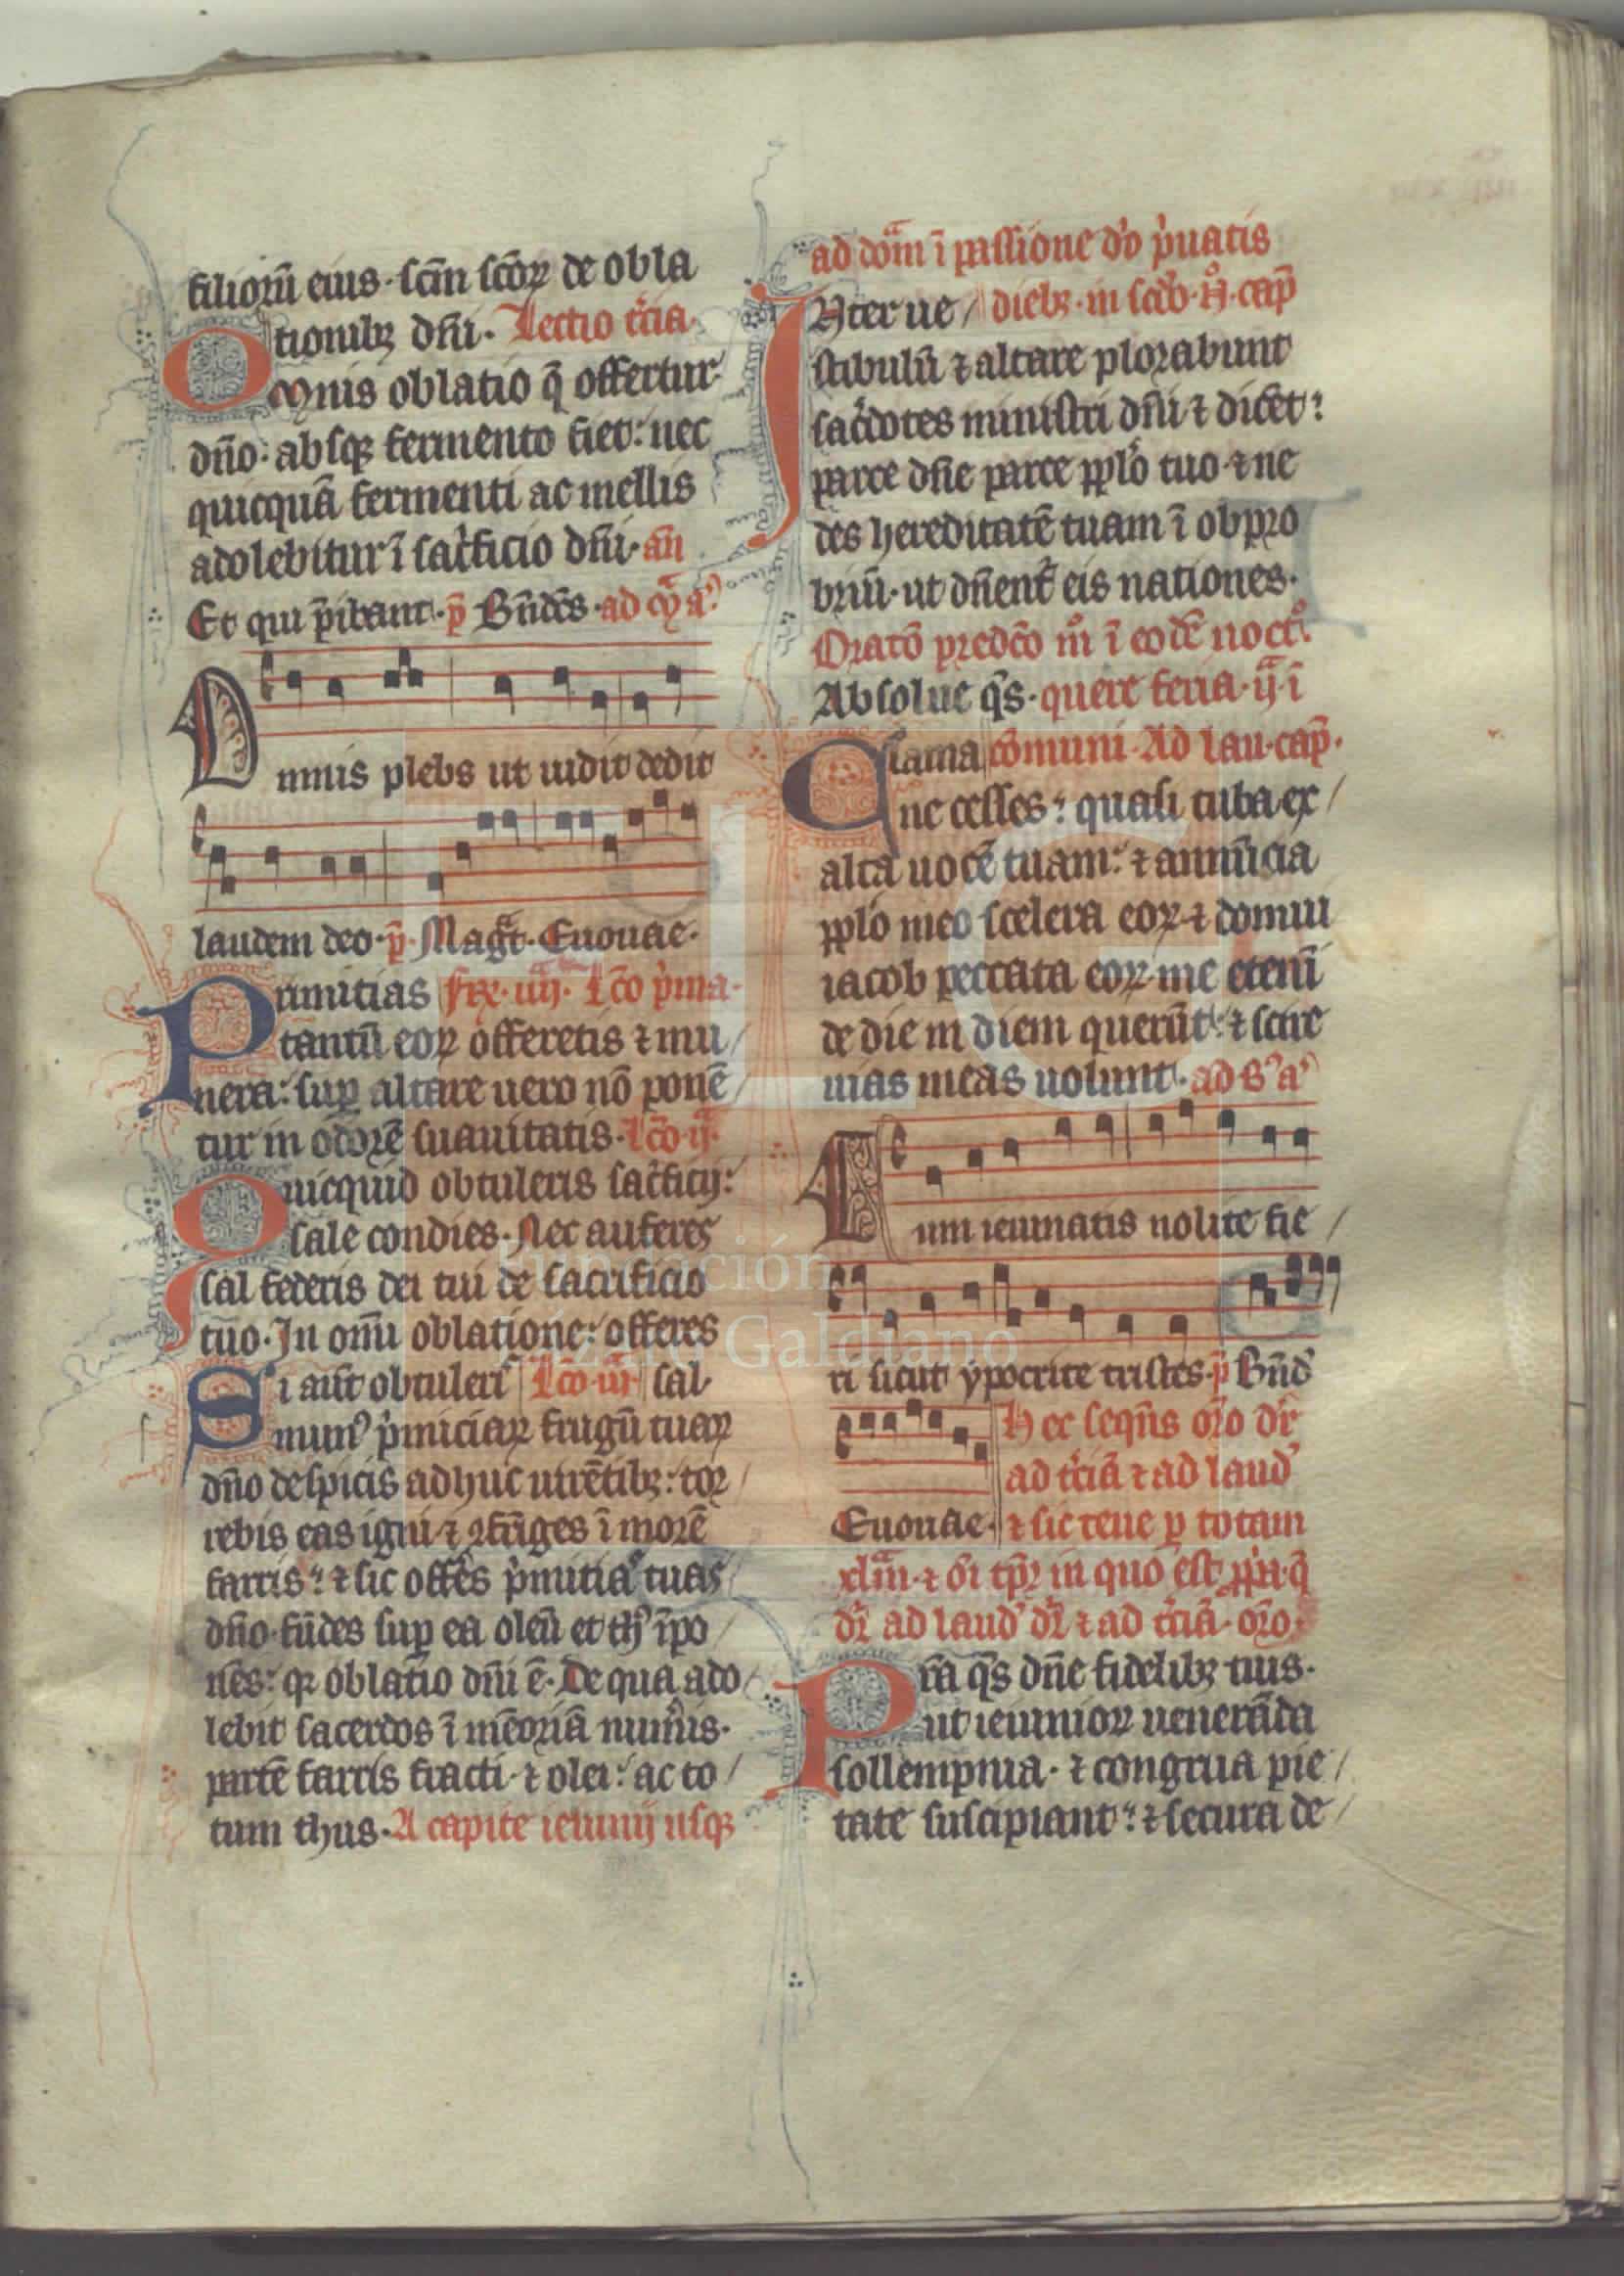 filioꝝ̄ eius · sc̄m sc̄oꝝ de obla
tionibꝫ dn̄i · Lectio t̉cia ·
Omnis oblatio q̄ offertur
dn̄o · absqꝫ fermento fiet : nec
quicquā fermenti ac mellis
adolebitur ī sac̉ficio dn̄i · an̄
Et qui p̄ibant · p̄ Bn̄dc̄s · ad
Omnis plebs ut uidit dedit
laudem deo · p̄ · Magt̄ · Euouae ·
Primitias iiij · lc̄o p̉ma ·
tantū eoꝝ offeretis ⁊ mu/
nera : suꝑ altare uero nō ponē/
tur in odorē suauitatis · lc̄o · ij ·
Quicquid obtuleris sac̉ficij :
sale condies · Nec auferes
sal federis dei tui de sacrificio
tuo · In om̄i oblatione : offeres
Si aut̄ obtuleris lc̄o · iii · sal ·
mun᾽ p̉miciaꝝ frugū tuaꝝ
dn̄o de spicis adhuc uirētibꝫ : tor/
rebis eas igni · ⁊ ꝯfr̄iges ī morē
farris : ⁊ sic offēs p̉mitias tuas
dn̄o · fūdes suꝑ ea oleū et th᾽ īpo/
nēs : qꝛ oblatio dn̄i ē · De qua ado/
lebit sacerdos ī mēoriā mun̉is ·
partē farris fracti · ⁊ olei : ac to/
tum thus · A capite ieiunij usqꝫ
ad dom̄ ī passione dō p̉uatis
INter ue/ diebꝫ · in sc̄dō · N̊ · cap̄
stibulū ⁊ altare plorabunt
sac̉dotes ministri dn̄i · ⁊ dicēt :
parce dn̄e parce pplō tuo · ⁊ ne
des hereditatē tuam ī obpro
briū · ut dn̄ent̄ eis nationes ·
Oratō predc̄o ī eodē noct̊ ·
Absolue q̄s · quere feria · ij · ī
Clama cōmuni · Ad lau · cap̄ ·
ne cesses : quasi tuba ex/
alta uocē tuam : ⁊ annūcia
pplō meo scelera eoꝝ · ⁊ domui
iacob peccata eoꝝ · me etenī
de die in diem querūt : ⁊ scire
uias meas uolunt · ad B᾽ a᾽
Cum ieiunatis nolite fie/
ri sicut ypocrite tristes · p̄ Bn̄d᾽
Hec seqn̄s or̄o dr̄
ad t̉ciā ⁊ ad laud᾽
Euouae · ⁊ sic tene ꝑ totam
xlm̄ · ⁊ om̄i tp̄r in quo est pp̉a · q̄
dr̄ ad laud᾽ dr̄ ⁊ ad t̉ciā · or̄o ·
Pr̄a q̄s dn̄e fidelibꝫ tuis ·
ut ieiunioꝝ uenerāda
sollempnia · ⁊ congrua pie/
tate suscipiant : ⁊ secura de/
Fundación
Lázaro Galdiano